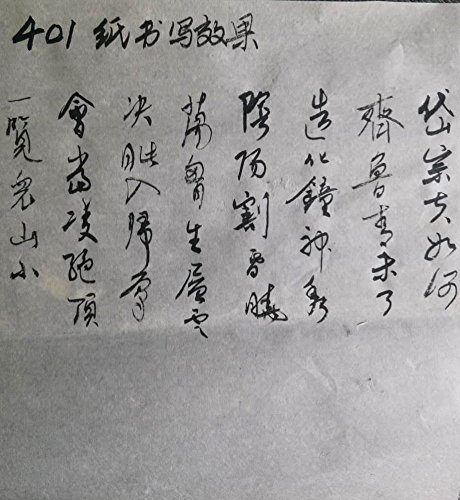 401纸书写效果
岱宗夫如何
齊魯青未了
造化鐘神秀
陰陽割昏曉
蕩胷生层雲
决眦入歸鸟
會當凌绝頂
一覧众山小